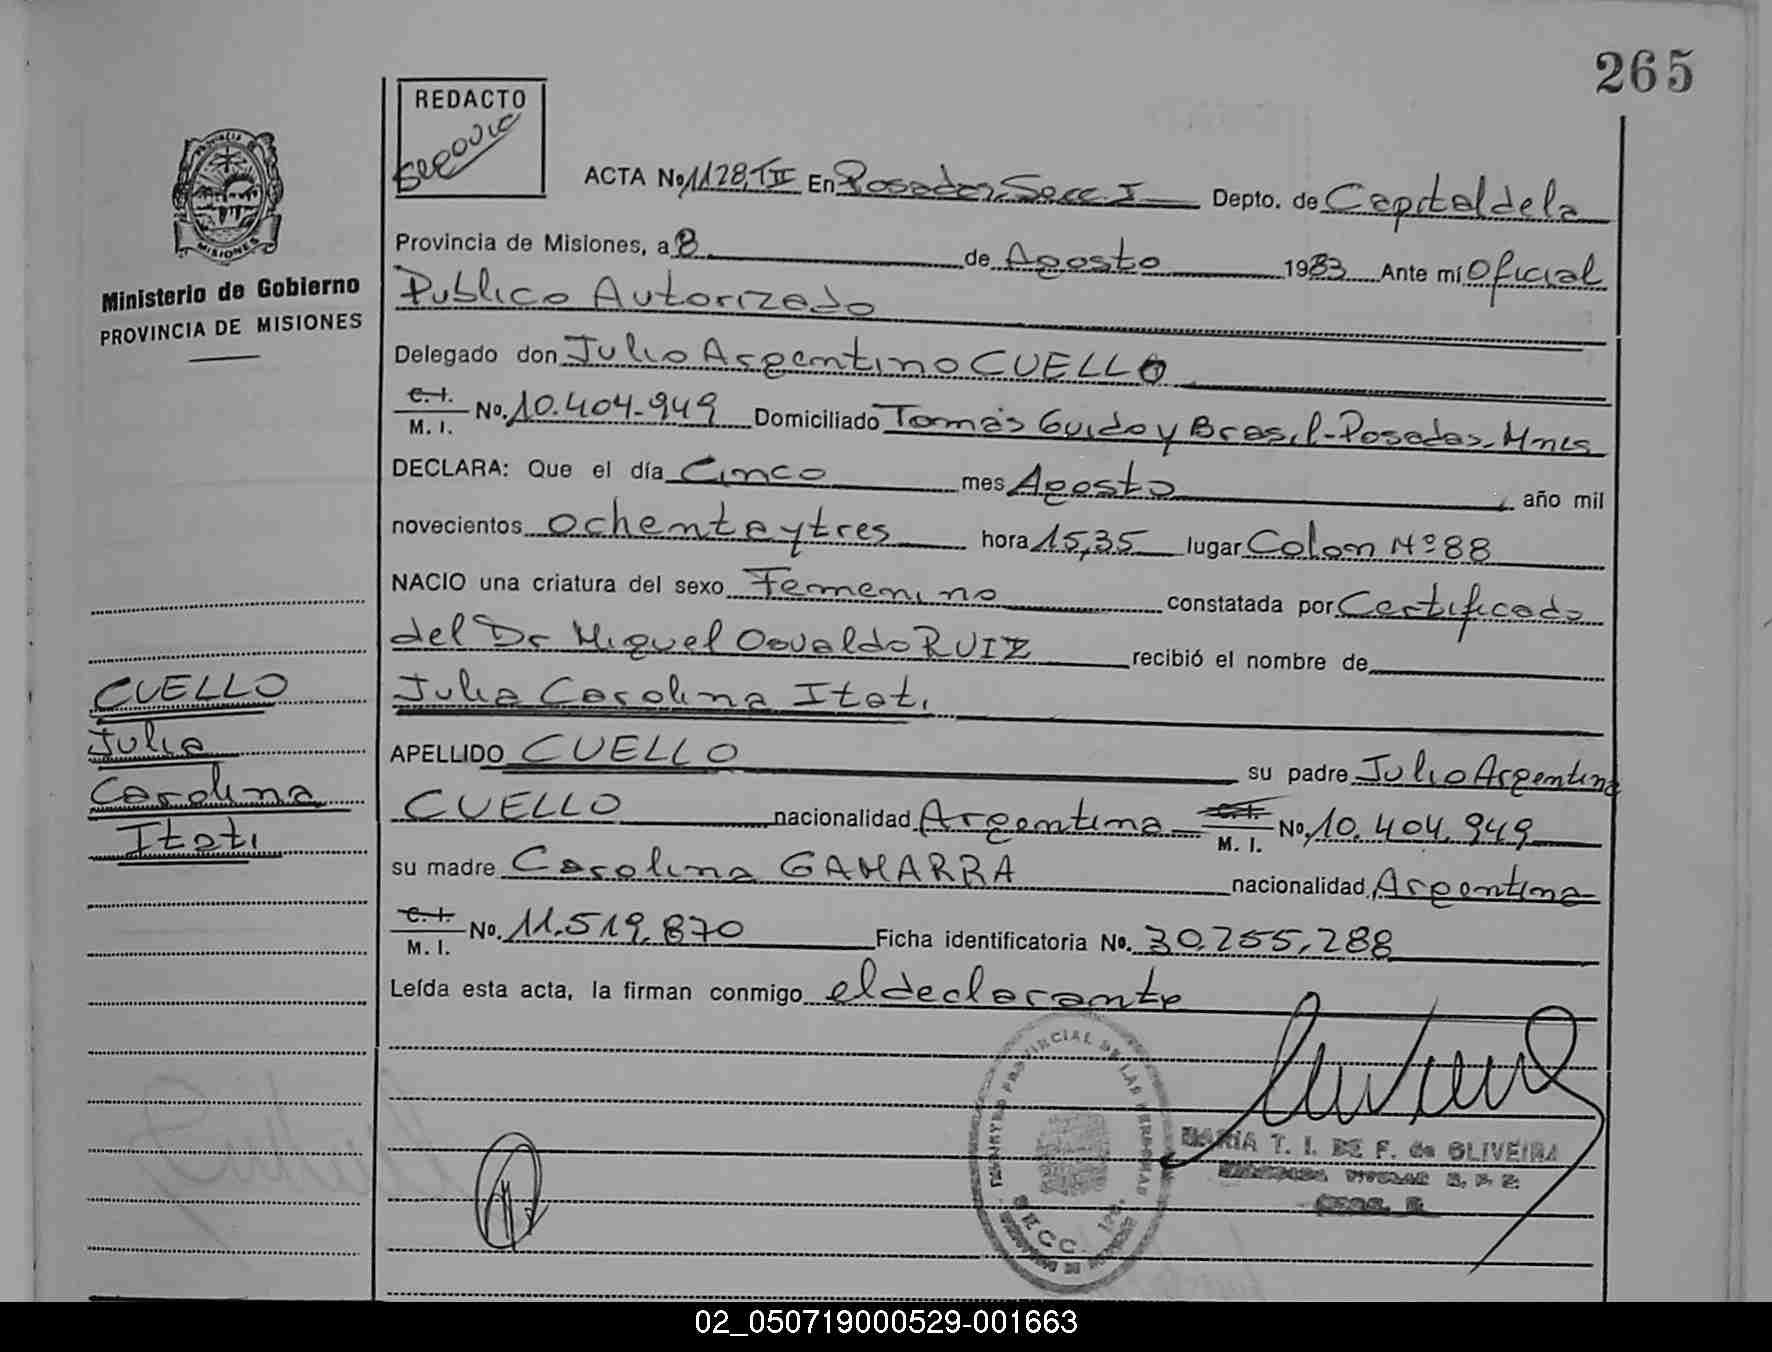 265
REDACTO
ACTA No. 1128, TII En Posadas, Secc. I Depto. de Capital de la
Provincia de Misiones, a 8 de Agosto 1983 Ante mí Oficial
Publico Autorizado
Delegado don Julio Argentino CUELLO
C. I.
M. I. No. 10.404.949 Domiciliado Tomás Guido y Brasil - Posadas, Mnes
DECLARA: Que el día Cinco mes Agosto, año mil
novecientos ochenta y tres hora 15,35 lugar Colon Nº 88
NACIO una criatura del sexo Femenino constatada por Certificado
del Dr Miguel Osvaldo RUIZ recibió el nombre de
Julia Carolina Itati
APELLIDO CUELLO su padre Julio Argentino
CUELLO nacionalidad Argentina C. I. M. I. No. 10.404.949
su madre Carolina GAMARRA nacionalidad Argentina
C. I.
M. I. No. 11.519.870 Ficha identificatoria No. 30.255.288
Leída esta acta, la firman conmigo el declarante
PROVINCIA
MISIONES
Ministerio de Gobierno
PROVINCIA DE MISIONES
CUELLO
Julia
Carolina
Itati
PROVINCIAL DE LAS PERSONAS
SECC. 1ra.
MARIA T. I. DE F. de OLIVEIRA
TITULAR R. P. P.
02_050719000529-001663